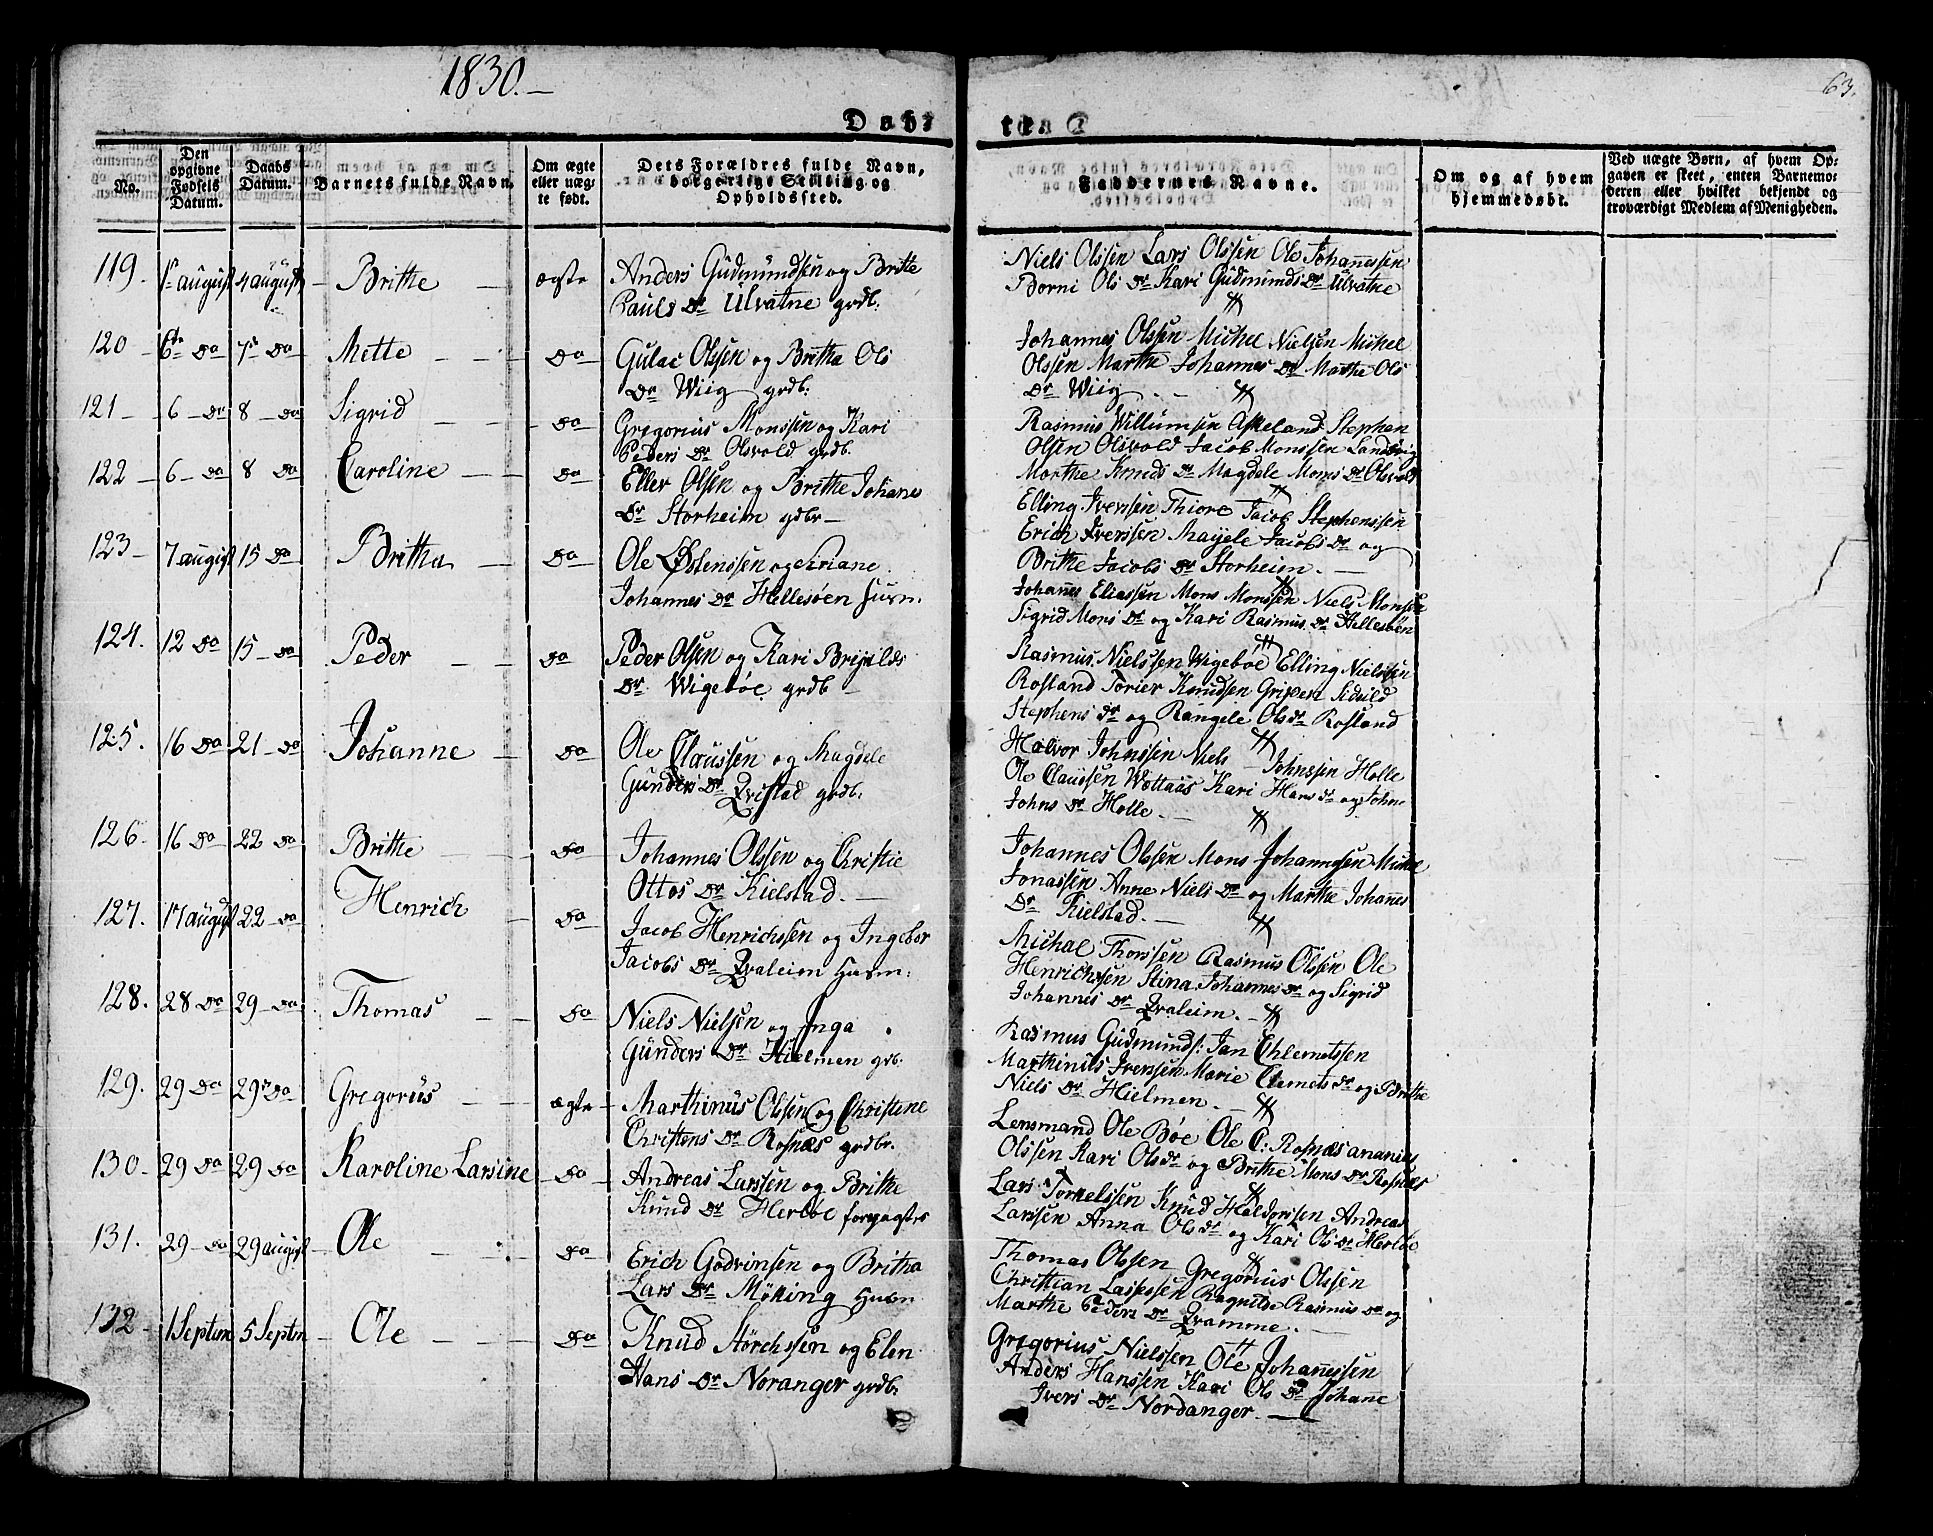 1830.
63.
Døbte
No.
Den opgivne Fødsels Datum.
Daabs Datum.
Barnets fulde Navn.
Om ægte eller uægte født.
Dets Forældres fulde Navn, borgerlige Stilling og Opholdssted.
Faddernes Navne.
Om og af hvem hjemmedøbt.
Ved uægte Børn, af hvem Opgaven er skeet, enten Barnemoderen eller hvilket bekjendt og troværdigt Medlem af Menigheden.
119. 1ste august 4 august Brithe ægte Anders Gudmundsen og Britte
Pauls Dr Ulvatne grdb.
Niels Olssen Lars Olssen Ole Johanessen
Borni Ols Dr Kari Gudmunds Dr Ulvatne
120 6te Do 7de Do Mette Do Gulac Olssen og Britha Ols
Dr Wiig grdb.
Johannes Olssen Michel Nielsen Michel
Olssen Marthe Johannes Dr Marthe Ols
Dr Wiig.
121 6 Do 8 Do Sigrid Do Gregorius Monssen og Kari
Peders Dr Olsvold grdb.
Rasmus Willumsen Askeland Stephen
Olsen Olsvold Jacob Monssen Landvig
Marthe Knuds Dr Magdele Mons Dr Olsvold
122 6 Do 8 Do Caroline Do Eller Olsen og Brithe Johane
Dr Storheim gdbr
Elling Iversen Thiore Jacob Stephenssen
Erich Iverssen Maijele Jacobs Dr og
Brithe Jacobs Dr Storheim.
123 7 august 15 Do Britha Do Ole Østenssen og Ariane
Johannes Dr Hellesøen husm.
Johanes Eliassen Mons Monssen Niels Monsen
Sigrid Mons Dr og Kari Rasmus Dr Hellesøen
124. 12 Do 15 Do Peder Do Peder Olsen og Kari Brynilds
Dr Wigebøe grdb
Rasmus Nielssen Wigebøe Elling Nielssen
Rosland Torier Knudsen Gripen Sidsild
Stephens Dr og Rangele Ols Dr Rosland
125. 16 Do 21 Do Johanne Do Ole Claussen og Magdele
Gunders Dr Qvistad grdb.
Halvor Johnssen Niels Johnssen Holle
Ole Claussen Wottaas Kari Hans Dr og John
Johns Dr Holle.
126. 16 Do 22 Do Brithe Do Johannes Olssen og Christie
Ottos Dr Kielstad.
Johannes Olssen Mons Johannesen Michel
Jonassen Anne Niels Dr og Marthe Johanes
Dr Kielstad.
127. 17 august 22 Do Henrich Do Jacob Henrichssen og Ingebor
Jacobs Dr Qvaleim Husm.
Michal Thorssen Rasmus Olssen Ole
Henrichssen Stina Johannes Dr og Sigrid
Johannes Dr Qvaleim.
128. 28 Do 29 Do Thomas Do Niels Nielsen og Inga
Gunders Dr Hielmen grb.
Rasmus Gudmunds: Jan Chlemetssen
Marthinus Iverssen Marie Clemets Dr og Brithe
Niels Dr Hielmen.
129. 29 Do 29 Do Gregorius ægte Marthinus Olssen og Christene
Christens Dr Rosnæs grdbr.
Lensmand Ole Bøe Ole C: Rosnæs ananias
Olssen Kari Ols Dr og Brithe Mons Dr Rosnæs
130 29 Do 29 Do Karoline Larsine Do Andreas Larssen og Brithe
Knud Dr Herløe forpagter
Lars Torkelssen Knud Haldorssen Andreas
Larssen Anna Ols Dr og Kari Ols Dr Herløe
131. 29 Do 29 august Ole Do Erich Godvinsen og Britha
Lars Dr Møking Husm
Thomas Olssen Gregorius Olssen
Christian Lassessen Ragnilde Rasmus Dr og
Marthe Peders Dr Qvamme.
132 1 Septem 5 Septm Ole Do Knud Størchssen og Elen
Hans Dr Noranger grdb.
Gregorius Nielssen Ole Johanessen
Anders Hanssen Kari Ols Dr Johane
Ivers Dr Nordanger.